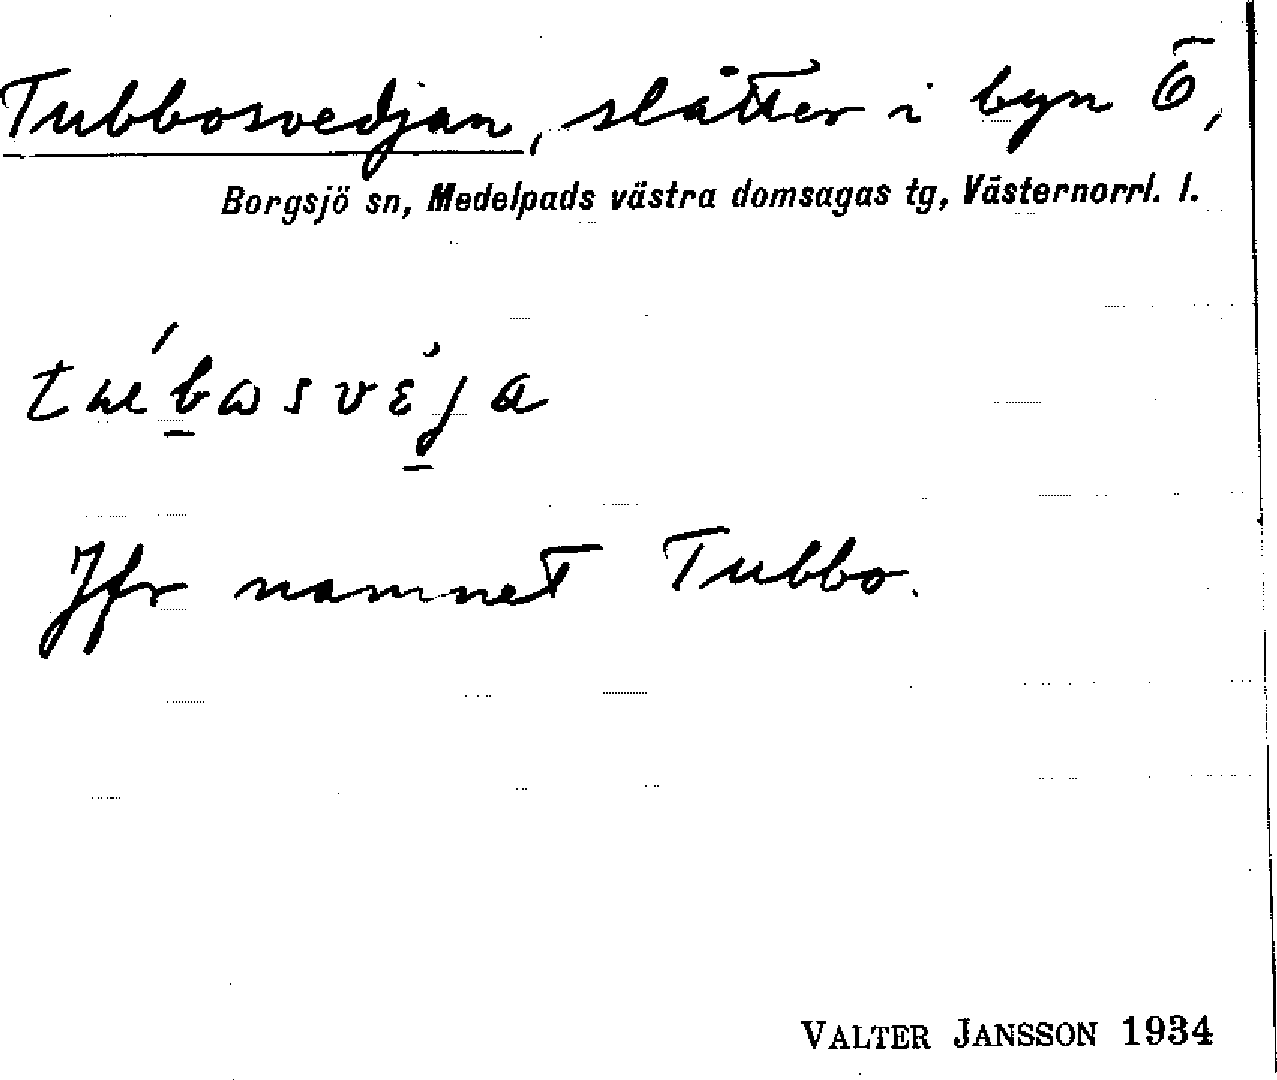 Tubbosvedjan, slåtter i byn Ö,
Borgsjö sn, Medelpads västra domsagas tg, Västernorrl. l.
Jfr namnet Tubbo.
VALTER JANSSON 1934